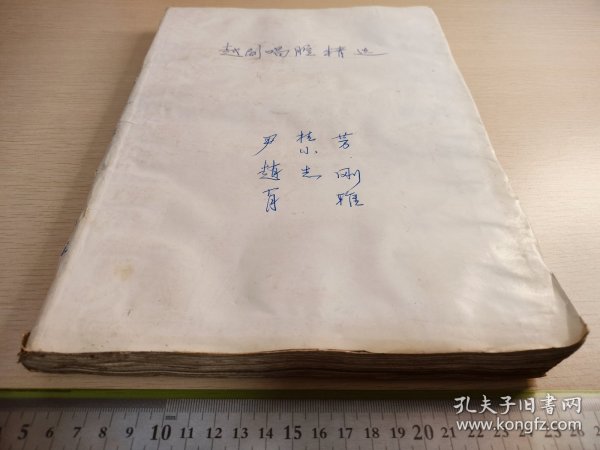 越剧唱腔精选
尹桂芳
小
赵志刚
肖雅
孔夫子旧书网
www.kongfz.com
5 6 7 8 9 10 11 12 13 14 15 16 17 18 19 20 21 22 23 24 25